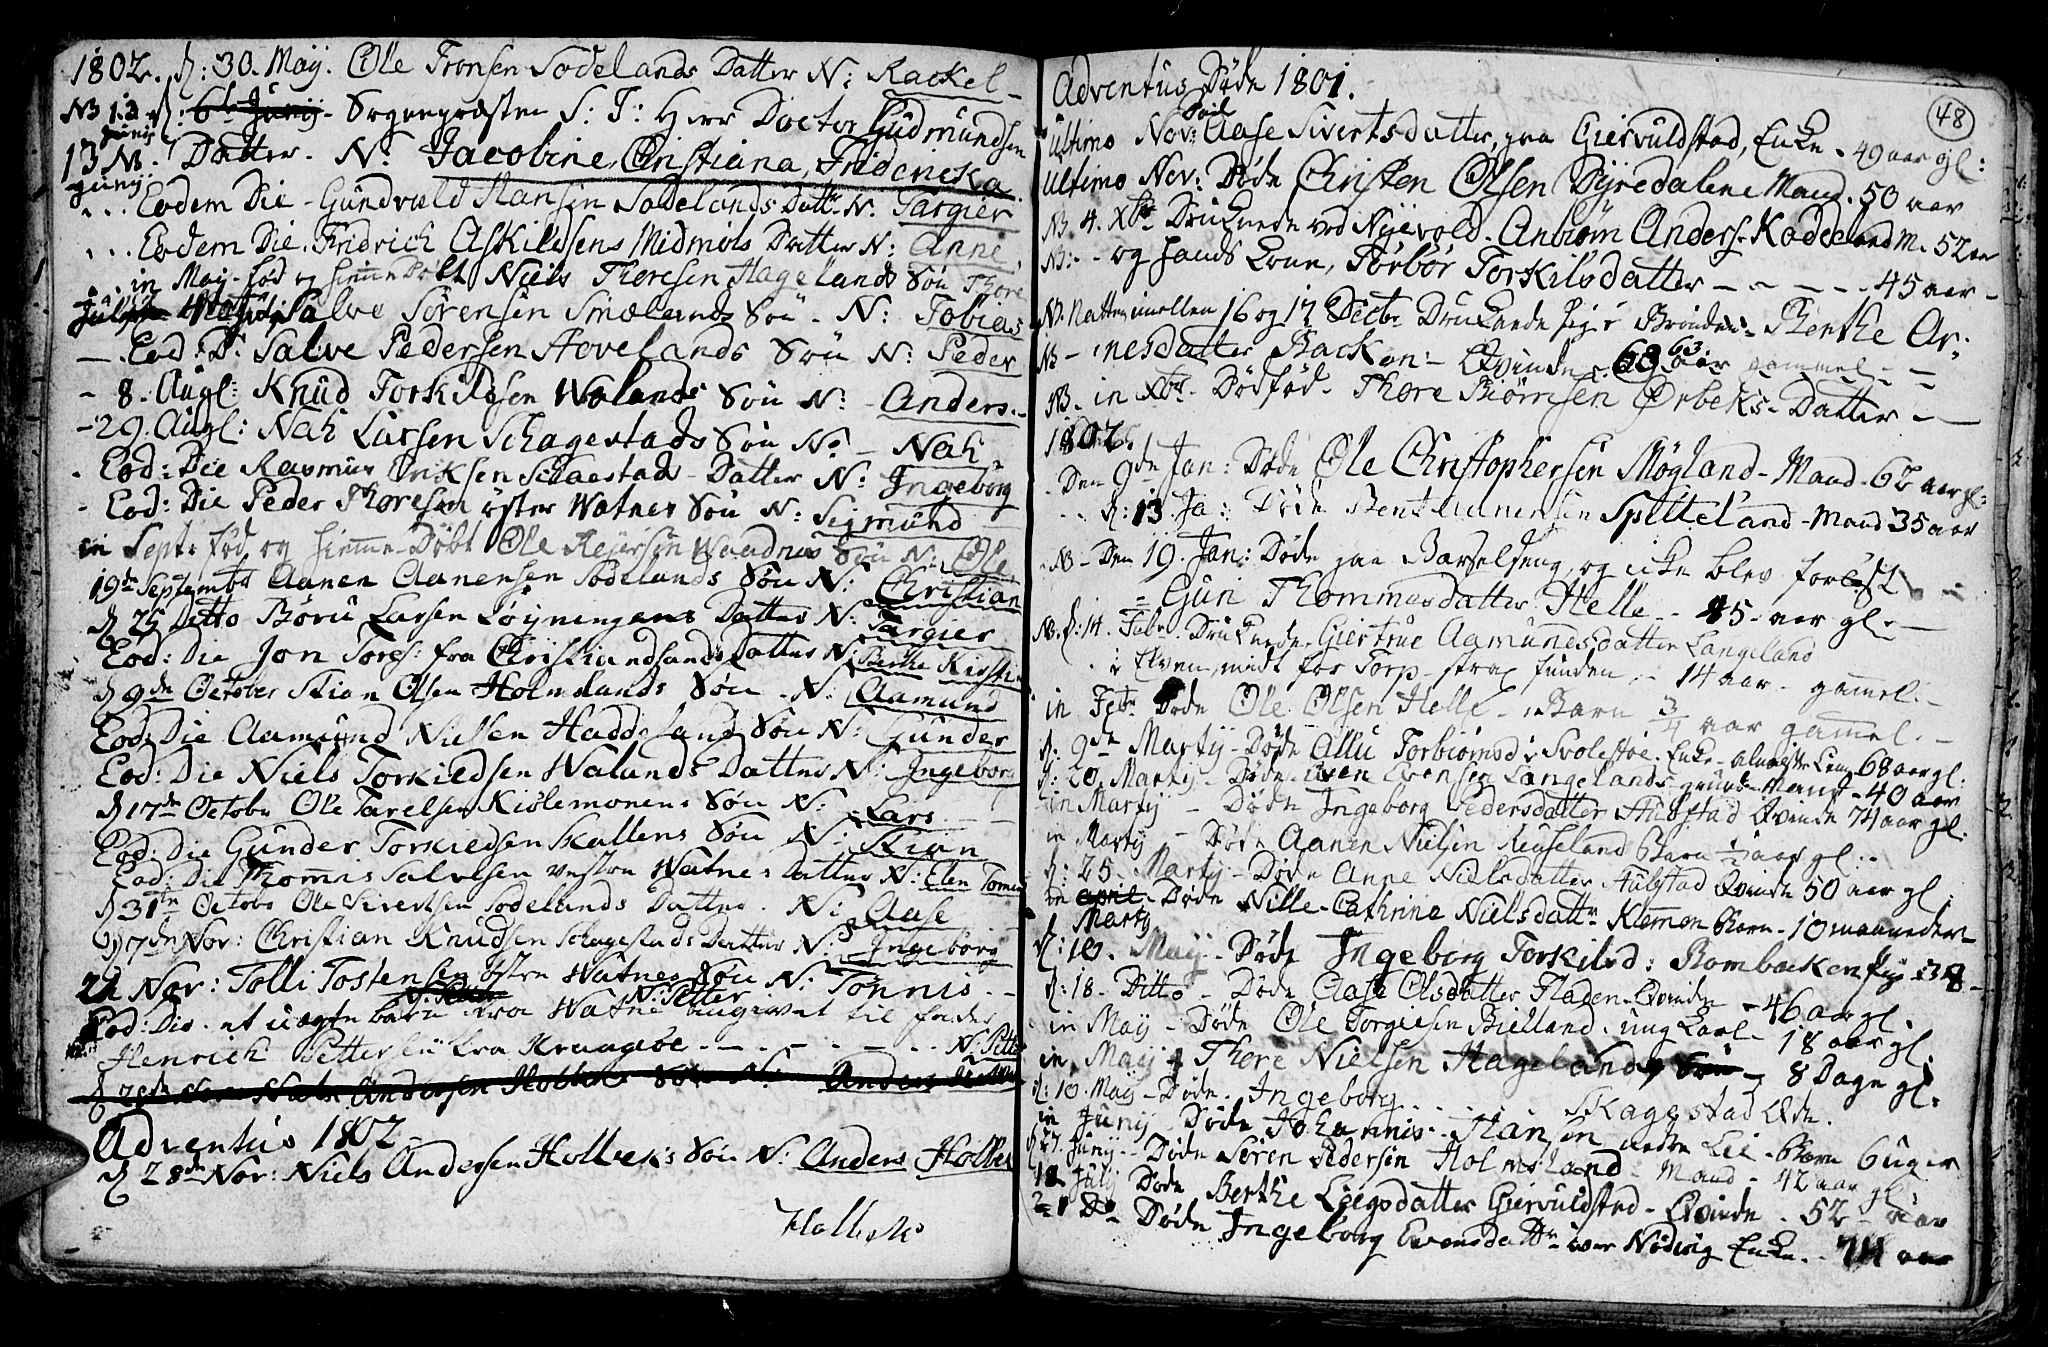 1802. d: 30. Maÿ. Ole Tronsen Sodelands Datter N: Rackel
NB 13 Junÿ d: 6t Junij - Sognepræsten S: T: Herr Doctor Gudmundsen
13 NB. Junÿ. Datter. N: Jacobine, Christiana, Fridericka
Eodem Die - Gundvald Hansen Sodelands Dattr N: Targier
Eodem Die. Fridrich Askildsens Midmøls Datter N: Anne
in Maÿ - fød og hiemmedøbt Niels Thoresen Hagelands Søn Thore
Salve Sørensen Smælands Søn - N: Tobias
Eod: D: Salve Pedersen Hovelands Søn N: Peder
8. Augl: Knud Torkildsen Wolands Søn N: Anders
29. Augl: Nah Larsen Schagestads Søn N: Nah
Eod: Die Rasmus Eriksen Schagestads - Datter N: Ingeborg
Eod: Die Peder Thoresen øster Watnes Søn N: Sigmund
in Sept: fød og hiemme-Døbt Ole Rejersen Waadnes Søn N: Ole
19de Septembr Aanen Aanensen Sodelands Søn N: Christian
d 25 Ditto Børu Larsen Løÿningens Datter N: Targier
Eod: Die Jon Tores: fra Christiandsands Datter N: Kirsti
d 9de October Stian Olsen Holmelands Søn - N: Aamund
Eod: Die Aamund Nielsen Haddeland Søn N: Gunder
Eod: Die Niels Torkildsen Walands Datter N: Ingeborg
d 17de Octobr Ole Tarelsen Kiølemonens Søn N: Lars
Eod: Die Gunder Torkieldsen Skallens Søn N: Stian
Eod: Die Thommis Salvesen vestre Watnes Datter N: Elen
d 31te Octobr Ole Sivertsen Sodelands Datter. N: Aase
d 7de Nor: Christian Knudsen Schagestads Datter N: Ingeborg
21 Nor: Tolli Tostensen østre Watnes Søn N: Tonnis
Eod: Die - et uægte barn fra Watne N: Petter angivet til fader
Henrich Pettersen fra Kraagøe - - - - N: Petter
d 28de Nor Niels Andersen Holbeks Søn N: Anders
Adventus 1802
d 28de Nor: Niels Andersen Holbeks Søn N: Anders Holbek
Holbeks
48
Adventus Døde 1801.
Ultimo Nov: Død Aase Sivertsdatter, paa Giervuldstad, Enke - 49 aar gl:
Ultimo Nov: Døde Christen Olsen Dÿredalene Mand. 50 aar
NB 4. Xbr Druknede ved Nÿevold. Anbiørn Anders. Kaddeland M. 52 aar
NB: - og hands Kone, Torbør Torkilsdatter - - - - 45 aar -
NB. Natten imellem 16 og 17 Decbr Druknede sig i Brønden - Berthe Ar-
NB - nesdatter Backen - Qvinde - 68 63 aar gammel - -
NB. in Xbr. Dødfød. Thore Biørnsen Ørbeks - Datter -
1802.
Den 9de Jan: Døde Ole Christophersen Møgland - Mand - 62 aar gl:
d: 13. Ja: Døde Bent Spitteland - Mand 35 aar
NB - Den 19. Jan: Døde paa Barselseng, og ikke blev forløst
Gun Thommesdatter Helle - 45 - aar gl. -
NB. d: 14. Febr. Druknede Giertrue Aamundsdatter Langeland
i Elven, midt for Torp - strax funden - 14 aar - gammel. -
in Febr Døde Ole Olsen Helle - Barn 3/4 aar gammel. -
d: 9de Martÿ - Døde Allu Torbiørnsd: Svolestøe, Enke - 68 aar gl:
d: 20. Martÿ - Døde Even Evensen Langelands - Mand - 40 aar
in Martÿ - Døde Ingeborg Pedersdatter Hulstad Qvinde 74 aar gl.
in Martÿ - Døde Aanen Nielsen Reuseland Barn 1/2 aar gl: -
d: 25. Martÿ - Døde Anne Nielsdatter Hulstad Qvinde 50 aar gl.
in april Martÿ - Døde Nille Cathrine Nielsdattr Klemmen Barn - 10 maaneder
d: 10. Maÿ - Døde Ingeborg Torkilsd: Rombakken
d: 18 - Ditto - Døde Aase Olsdatter Fladen - Qvinde - 46 aar gl.
in Maÿ - Døde Ole Torgiesen Bielland - ung Karl - 18 aar gl.
in Maÿ Thore Nielsen Hageland Søn - 8 Dage gl.
d: 10. Maÿ - Døde. Ingeborg . . . . Skagestad
in Junÿ - Døde Johannis - Hansen nedre Lei - Barn 6 uger
d 27. Junÿ - Døde Søren Pedersen Holmsland - Mand - 42 aar gl
18 Julÿ Døde Berthe Liegsdatter Giervuldstad - Qvinde - 52 - aar
21 Do - Døde Ingeborg Evensdattr Enke. - 74 aar